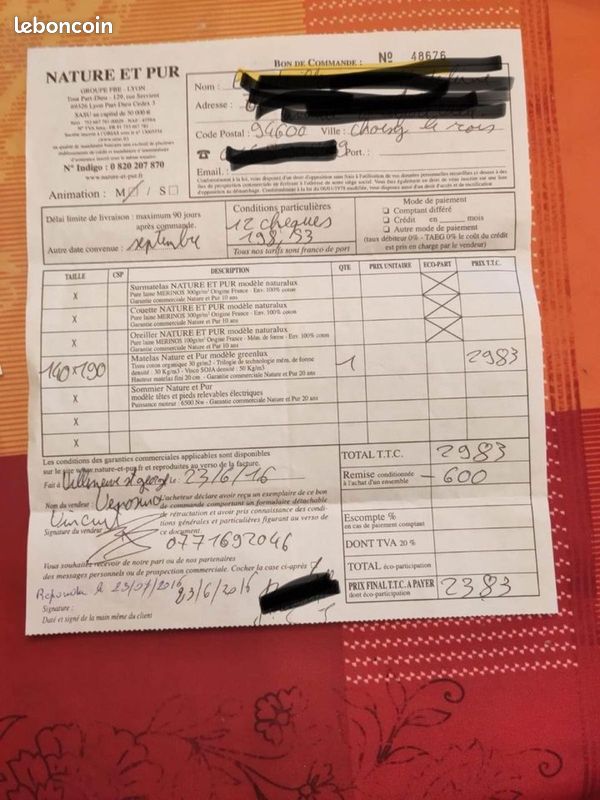 leboncoin
NATURE ET PUR
GROUPE FBE - LYON
Tour Part-Dieu - 129, rue Servient
69326 Lyon Part-Dieu Cedex 3
SASU au capital de 50 000 €
N° Indigo : 0 820 207 870
www.nature-et-pur.fr
Animation : M / S
BON DE COMMANDE : N° 48676
Nom :
Adresse :
Code Postal : 94600 Ville : Choisy le rois
Port. :
Email :
Délai limite de livraison : maximum 90 jours
après commande.
Autre date convenue : septembre
Conditions particulières
12 cheques
198,53
Tous nos tarifs sont franco de port
Mode de paiement
Comptant différé
Crédit en mois
Autre mode de paiement
(taux débiteur 0% - TAEG 0% le coût du crédit
est pris en charge par le vendeur)
TAILLE CSP DESCRIPTION QTE PRIX UNITAIRE ECO-PART PRIX T.T.C.
X Surmatelas NATURE ET PUR modèle naturalux
Pure laine MERINOS 300gr/m² Origine France - Env. 100% coton
Garantie commerciale Nature et Pur 10 ans
X Couette NATURE ET PUR modèle naturalux
Pure laine MERINOS 300gr/m² Origine France - Env. 100% coton
Garantie commerciale Nature et Pur 10 ans
X Oreiller NATURE ET PUR modèle naturalux
Pure laine MERINOS 100gr/m² Origine France - Mém. de forme - Env. 100% coton
Garantie commerciale Nature et Pur 10 ans
140x190 Matelas Nature et Pur modèle greenlux 1 2983
Tissu coton organique 30 gr/m2 - Trilogie de technologie mém. de forme
densité : 50 Kg/m3 - Visco SOJA densité : 50 Kg/m3
Hauteur matelas fini 20 cm - Garantie commerciale Nature et Pur 20 ans
X Sommier Nature et Pur
modèle têtes et pieds relevables électriques
Puissance moteur : 6500 Nw - Garantie commerciale Nature et Pur 20 ans
X
X
Les conditions des garanties commerciales applicables sont disponibles
sur le site www.nature-et-pur.fr et reproduites au verso de la facture.
Fait à Villeneuve st george le : 23/6/16
Nom du vendeur :
Vincent
L'acheteur déclare avoir reçu un exemplaire de ce bon
de commande comportant un formulaire détachable
de rétractation et avoir pris connaissance des condi-
tions générales et particulières figurant au verso de
ce document.
Signature du vendeur
0771692046
TOTAL T.T.C. 2983
Remise conditionnée
à l'achat d'un ensemble - 600
Escompte %
en cas de paiement comptant
DONT TVA 20 %
TOTAL éco-participation
PRIX FINAL T.T.C. A PAYER 2383
dont éco-participation
Vous souhaitez recevoir de notre part ou de nos partenaires
des messages personnels ou de prospection commerciale. Cocher la case ci-après
le 23/07/2016 23/6/2016
Signature :
Daté et signé de la main même du client